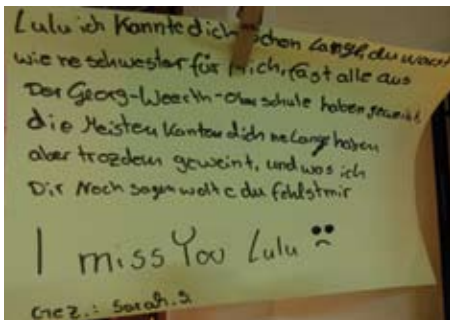 Lulu ich Kannte dich schon Lange, du warst
wie ne schwester für Mich, fast alle aus
Der Georg-Weerth-Oberschule haben geweint
die Meisten Kanten dich ne Lange haben
aber trozdem geweint, und was ich
Dir Noch sagen wolte du fehlst mir
I miss You Lulu
Gez.: Sarah.S